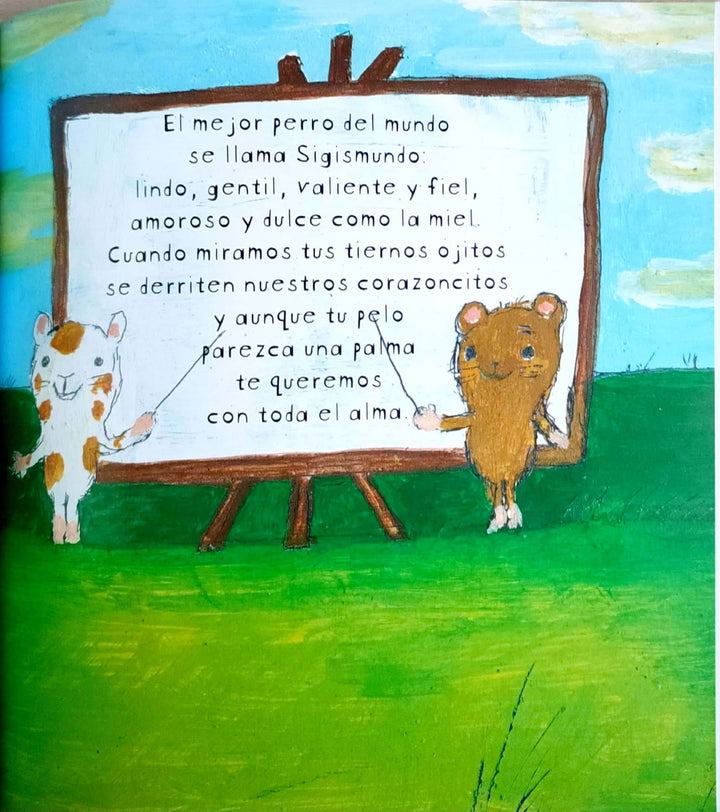 El mejor perro del mundo
se llama Sigismundo:
lindo, gentil, valiente y fiel,
amoroso y dulce como la miel.
Cuando miramos tus tiernos ojitos
se derriten nuestros corazoncitos
y aunque tu pelo
parezca una palma
te queremos
con toda el alma.